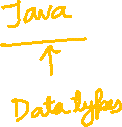 Java
Data types